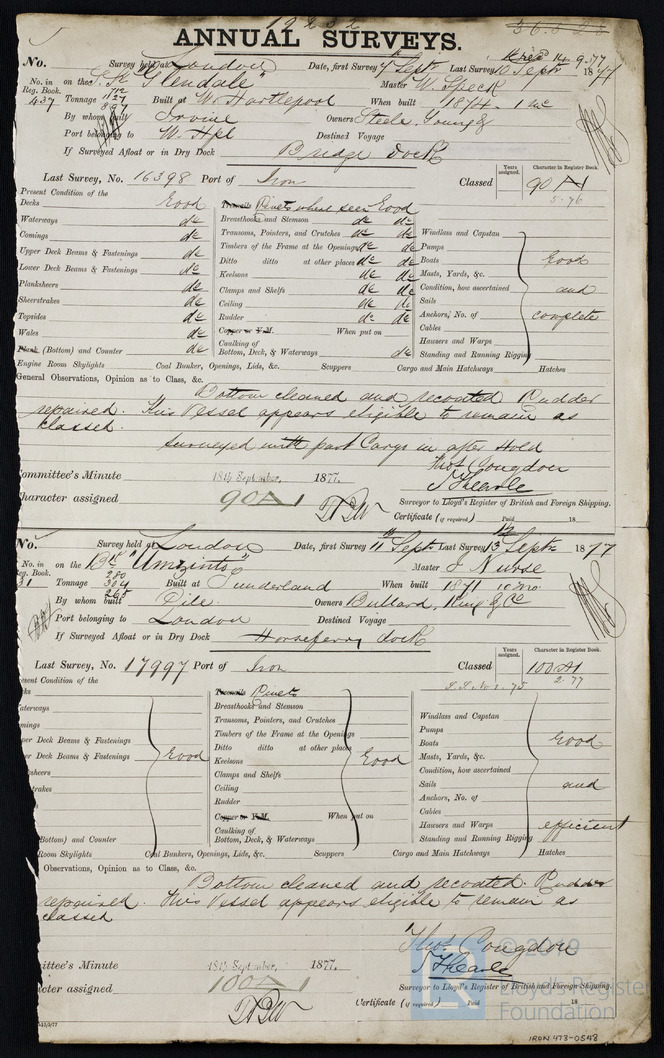 ANNUAL SURVEYS.
No. Survey held at London Date, first Survey 4 Septr Last Survey 10 Septr 1877
No. in Reg. Book. 437 on the S.S. "Glendale" Master W. Speck
Tonnage Built at W. Hartlepool When built 1874
By whom built Irvine Owners Steele, Young &
Port belonging to W. Hpl Destined Voyage
If Surveyed Afloat or in Dry Dock Bridge dock
Last Survey, No. 16398 Port of Iron Classed 90 A1
Years assigned. Character in Register Book.
5.76
Present Condition of the
Decks Good
Waterways do
Comings do
Upper Deck Beams & Fastenings do
Lower Deck Beams & Fastenings do
Planksheers do
Sheerstrakes do
Topsides do
Wales do
Plank (Bottom) and Counter do
Treenails Rivets where seen Good
Breasthooks and Stemson do do
Transoms, Pointers, and Crutches do do
Timbers of the Frame at the Openings do do
Ditto ditto at other places do do
Keelsons do do
Clamps and Shelfs do do
Ceiling do do
Rudder do do
Copper or Y.M. When put on
Caulking of
Bottom, Deck, & Waterways do
Windlass and Capstan
Pumps
Boats Good
Masts, Yards, &c.
Condition, how ascertained and
Sails
Anchors, No. of complete
Cables
Hausers and Warps
Standing and Running Rigging
Engine Room Skylights Coal Bunkers, Openings, Lids, &c. Scuppers Cargo and Main Hatchways Hatches
General Observations, Opinion as to Class, &c.
Bottom cleaned and recoated Rudder
repaired. This Vessel appears eligible to remain as
classed.
Surveyed with part Cargo in after Hold
Thos. Congdon
Committee's Minute 18th September, 1877.
Character assigned 90 A1
Surveyor to Lloyd's Register of British and Foreign Shipping.
Certificate (if required) Paid 18
No. Survey held at London Date, first Survey 11 Septr Last Survey 13 Septr 1877
No. in Reg. Book. 31 on the Bk "Umzinto" Master J Nurse
Tonnage 280 304 265 Built at Sunderland When built 1871 10 mo.
By whom built Pile Owners Bullard, King & Co
Port belonging to London Destined Voyage
If Surveyed Afloat or in Dry Dock Horseferry dock
Last Survey, No. 17997 Port of Iron Classed 100 A1
Years assigned. Character in Register Book.
2.77
esent Condition of the
ks
aterways
mings
per Deck Beams & Fastenings
er Deck Beams & Fastenings Good
sheers
trakes
Bottom) and Counter
Treenails Rivets
Breasthooks and Stemson
Transoms, Pointers, and Crutches
Timbers of the Frame at the Openings
Ditto ditto at other places
Keelsons Good
Clamps and Shelfs
Ceiling
Rudder
Copper or Y.M. When put on
Caulking of
Bottom, Deck, & Waterways
Windlass and Capstan
Pumps
Boats Good
Masts, Yards, &c.
Condition, how ascertained
Sails and
Anchors, No. of
Cables
Hausers and Warps efficient
Standing and Running Rigging
Room Skylights Coal Bunkers, Openings, Lids, &c. Scuppers Cargo and Main Hatchways Hatches
Observations, Opinion as to Class, &c.
Bottom cleaned and recoated. Rudder
repaired. This Vessel appears eligible to remain as
classed
Thos. Congdon
ittee's Minute 18th September, 1877.
cter assigned 100 A1
Surveyor to Lloyd's Register of British and Foreign Shipping.
Certificate (if required) Paid 18
© 2019
Lloyd's Register
Foundation
IRON 473-0548